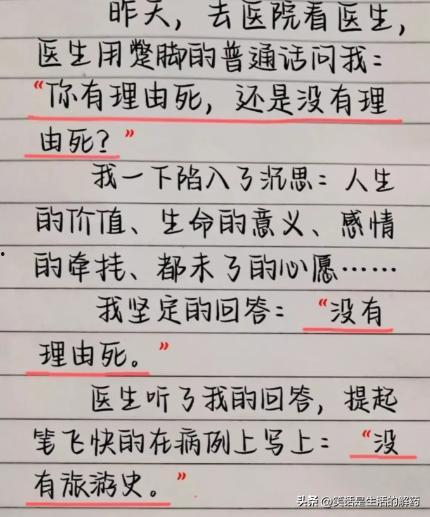 昨天，去医院看医生，
医生用蹩脚的普通话问我：
“你有理由死，还是没有理
由死？”
我一下陷入了沉思：人生
的价值、生命的意义、感情
的牵挂、都未了的心愿……
我坚定的回答：“没有
理由死。”
医生听了我的回答，提起
笔飞快的在病例上写上：“没
有旅游史。”
头条 @笑话是生活的解药